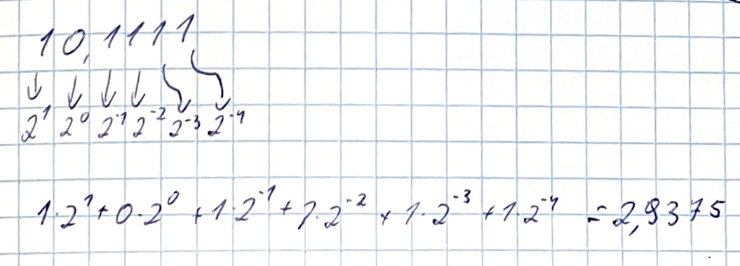 10,1111
2¹ 2⁰ 2⁻¹ 2⁻² 2⁻³ 2⁻⁴
1·2¹+0·2⁰+1·2⁻¹+1·2⁻²+1·2⁻³+1·2⁻⁴=2,9375